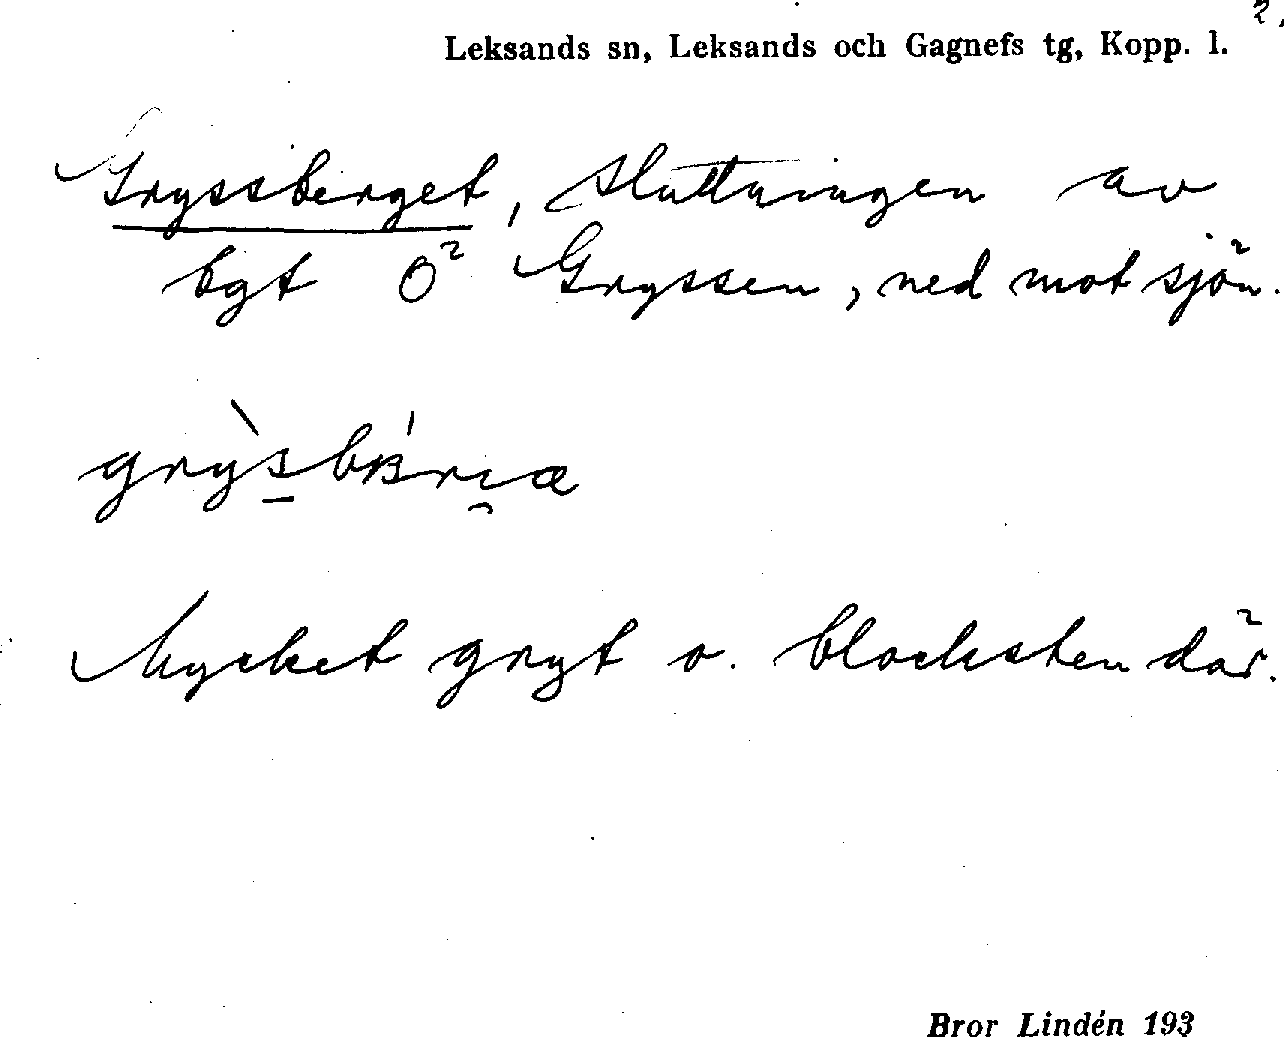 2.
Leksands sn, Leksands och Gagnefs tg, Kopp. l.
Gryssberget, sluttningen av
bgt O² Gryssen, ned mot sjön.
Mycket gryt o. blocksten där.
Bror Lindén 193